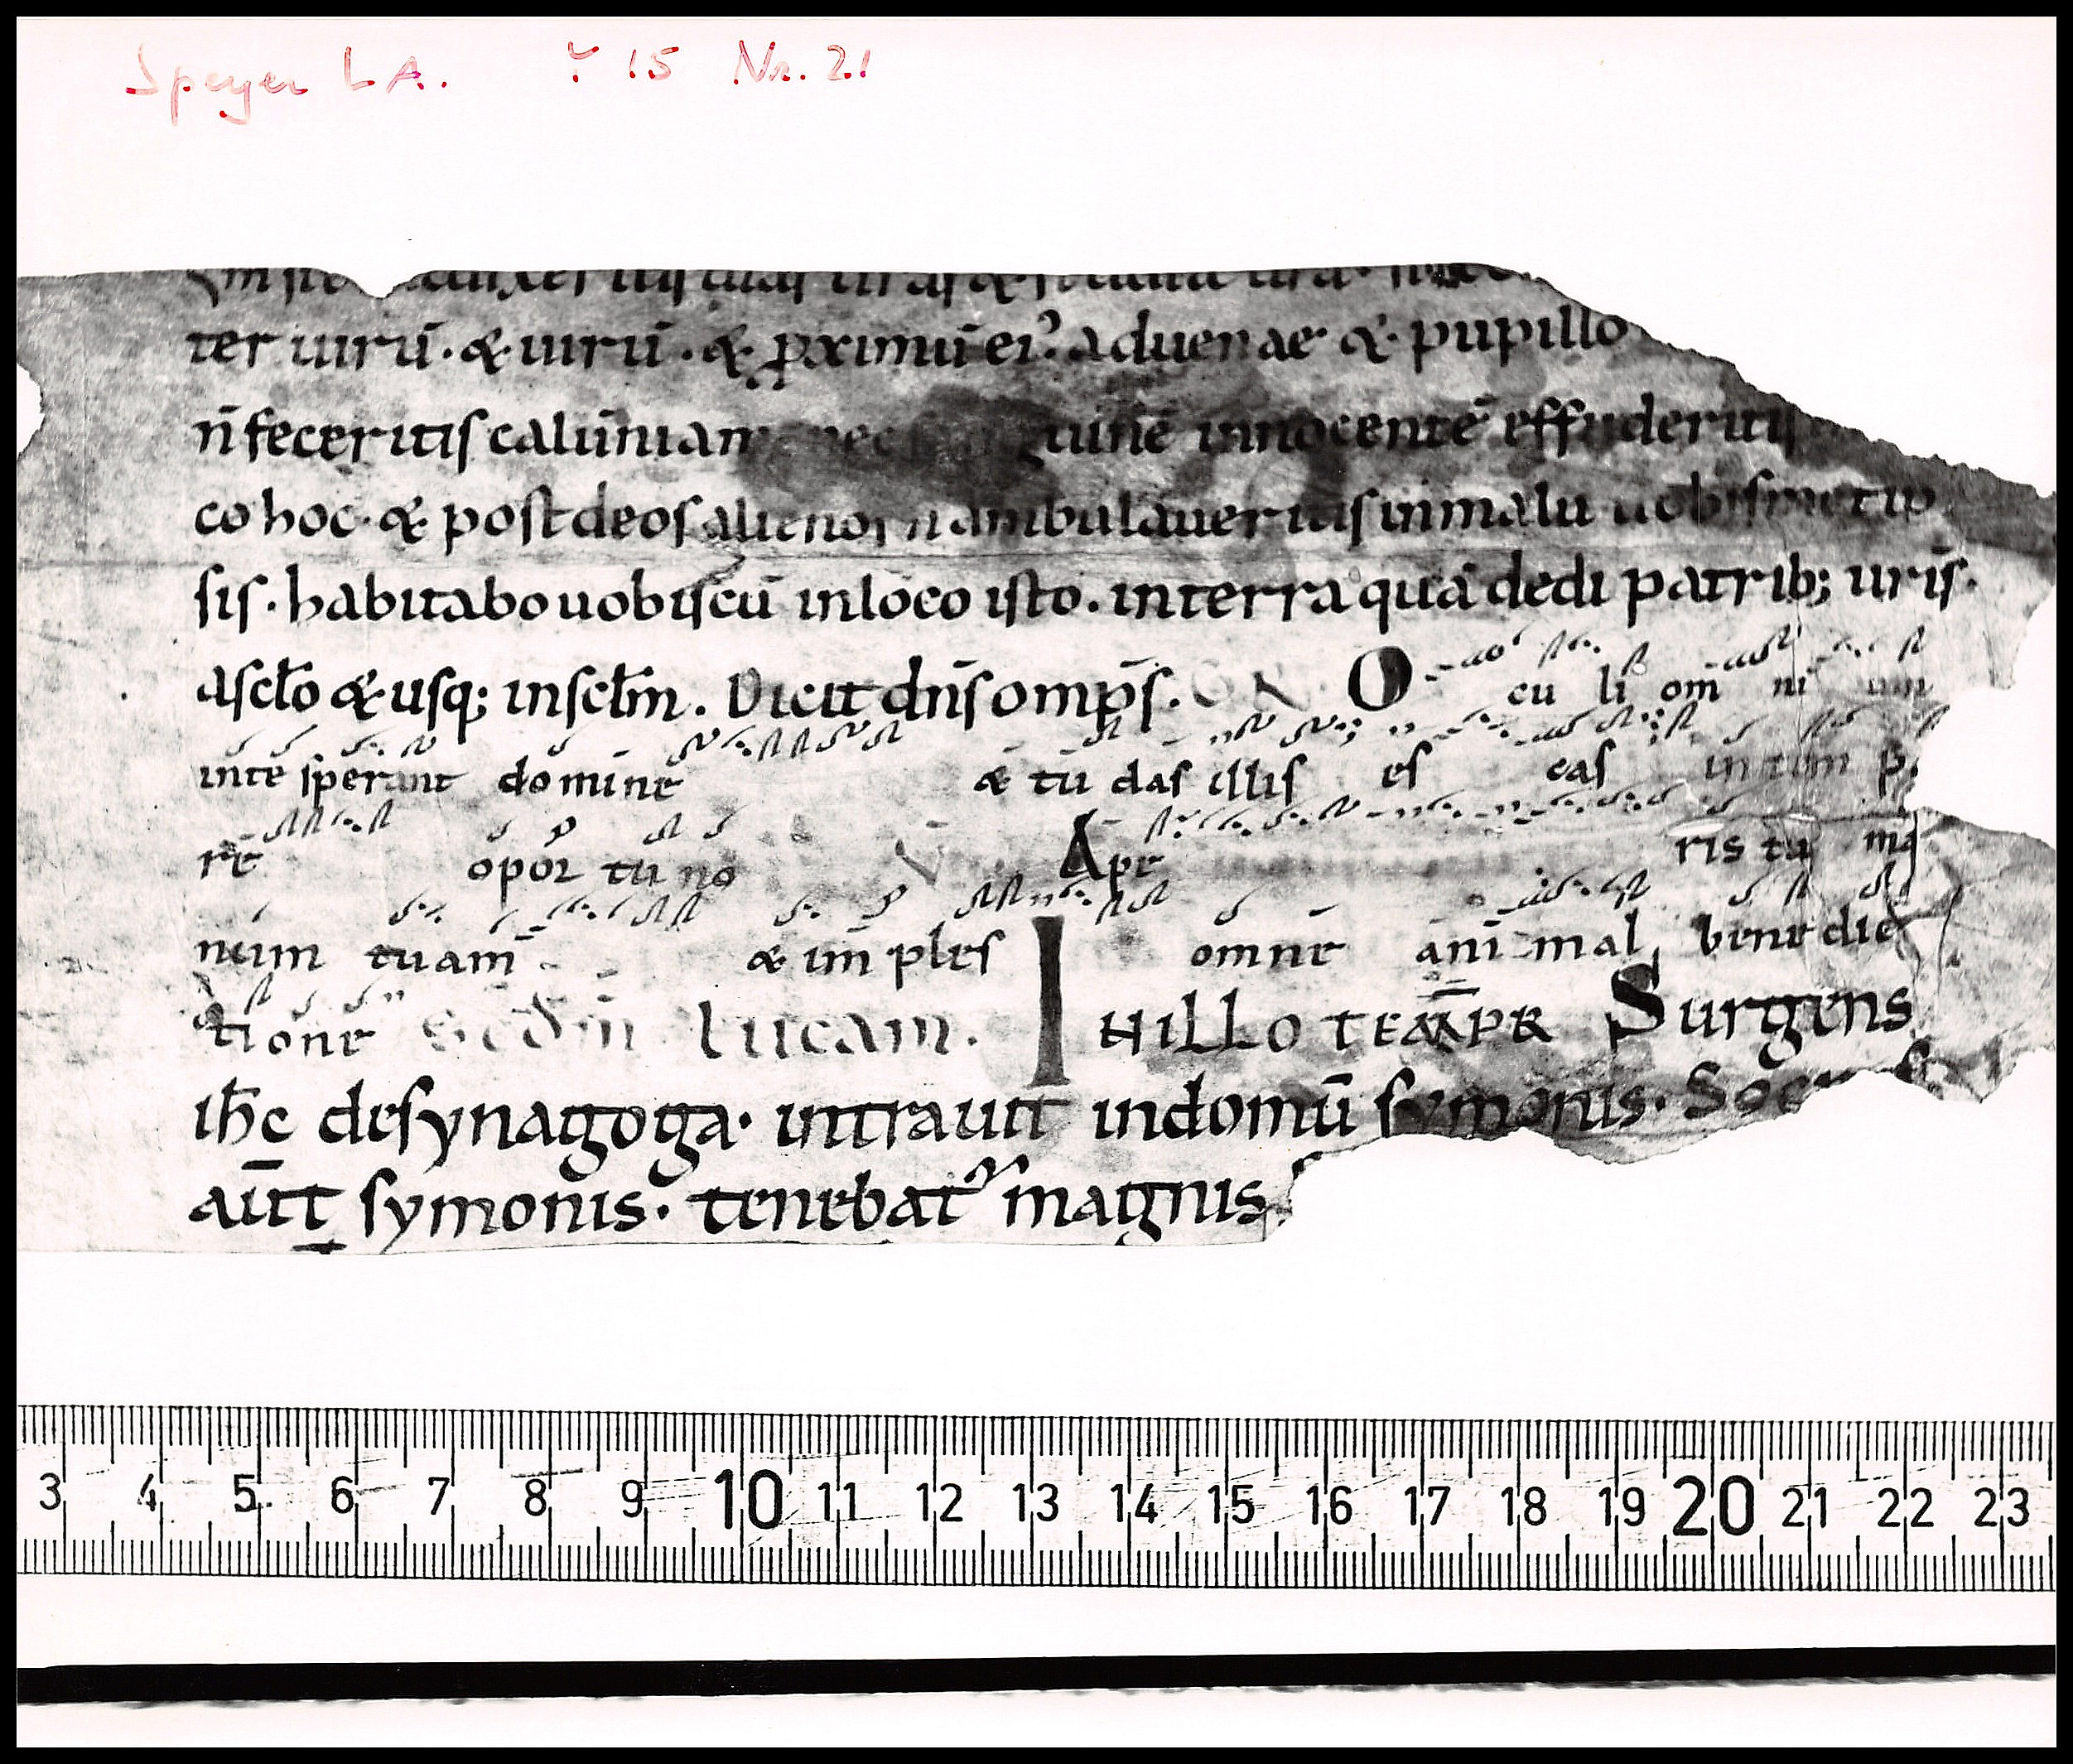 Speyer LA. T 15 Nr. 21
ter uirū. & uirū. & ꝓximū ei᾽. aduenae & pupillo
n̄ feceritis calūniam nec guinē innocentē effuderitis
co hoc. & post deos alienos n̄ ambulaueritis in malū uobismetip
sis. habitabo uobiscū in loco isto. in terra quā dedi patrib; uris̄.
a sclo & usq; in sclm. Dicit dn̄s omp̄s. GR O cu li om ni um
in te sperant domine & tu das illis es cas in tem p
re opor tu no V Ape ris tu ma
num tuam & im ples omne ani mal benedic
tione Scdm̄ Lucam. IN ILLO TEMPR Surgens
ih̄c de synagoga. intrauit in domū symonis. Soc
aut̄ symonis. tenebat᾽ magnis
3 4 5 6 7 8 9 10 11 12 13 14 15 16 17 18 19 20 21 22 23